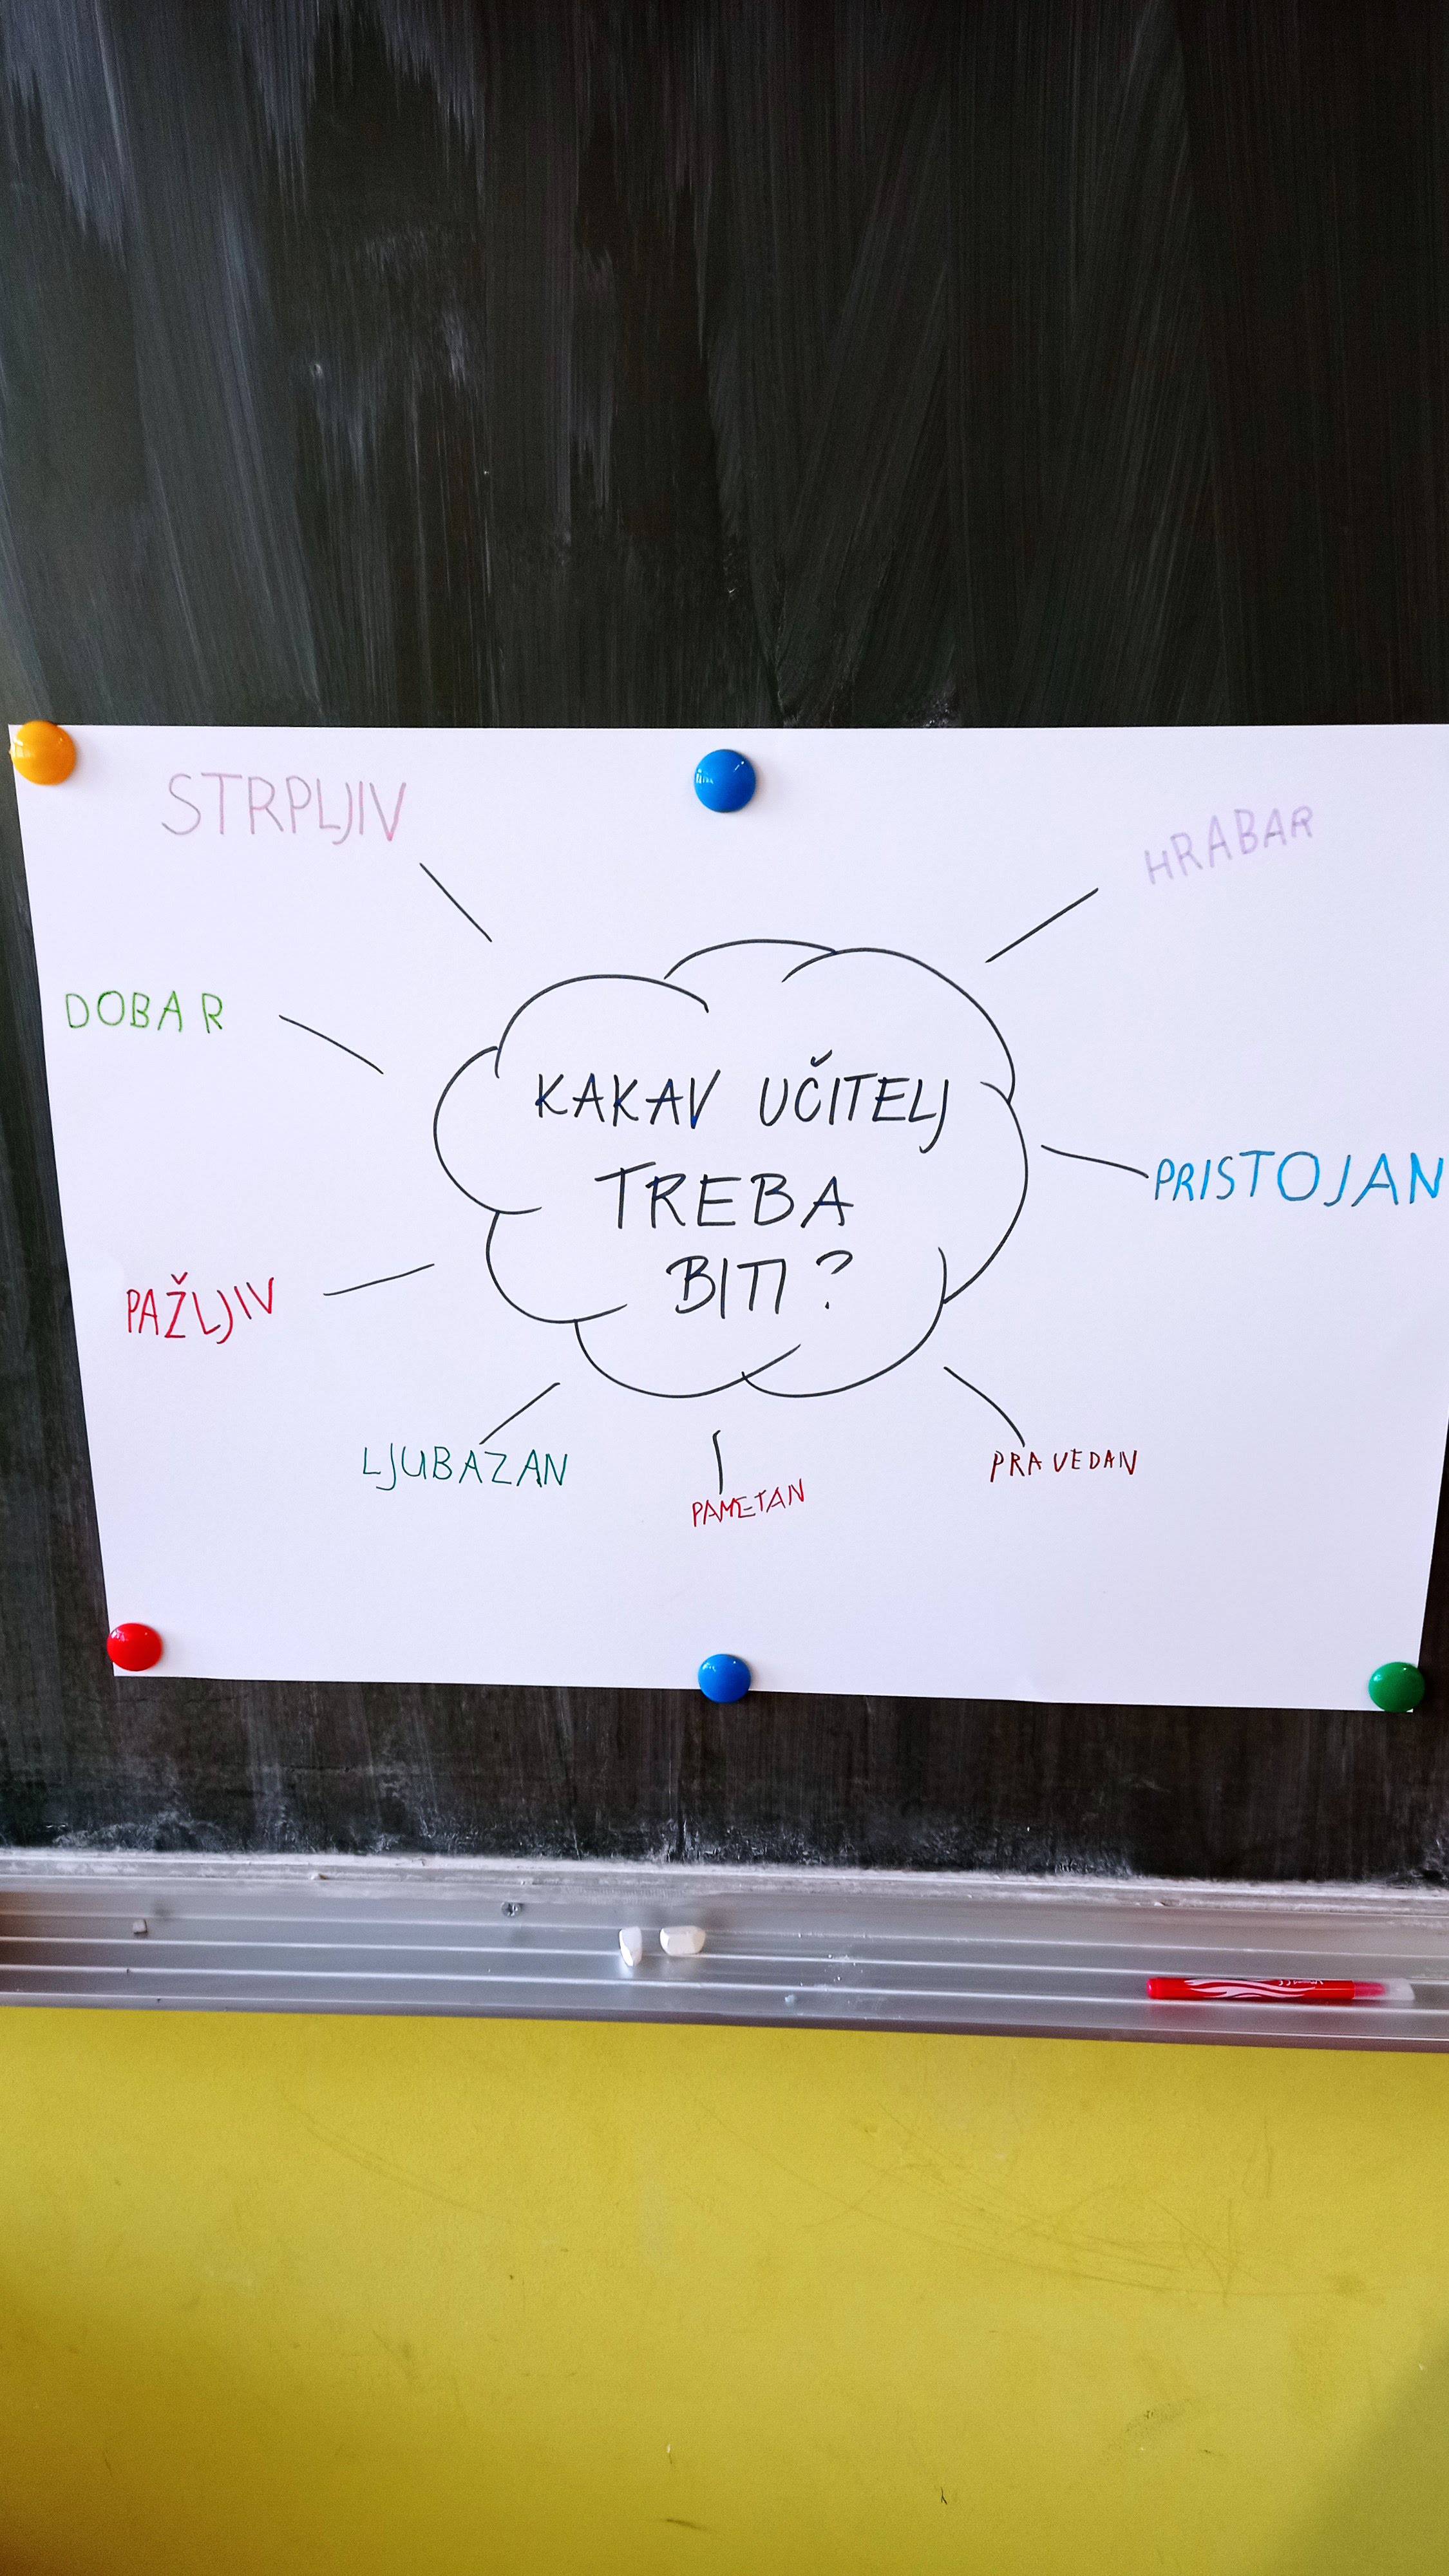 STRPLJIV
HRABAR
DOBAR
KAKAV UČITELJ
TREBA
BITI?
PRISTOJAN
PAŽLJIV
LJUBAZAN
PAMETAN
PRAVEDAN